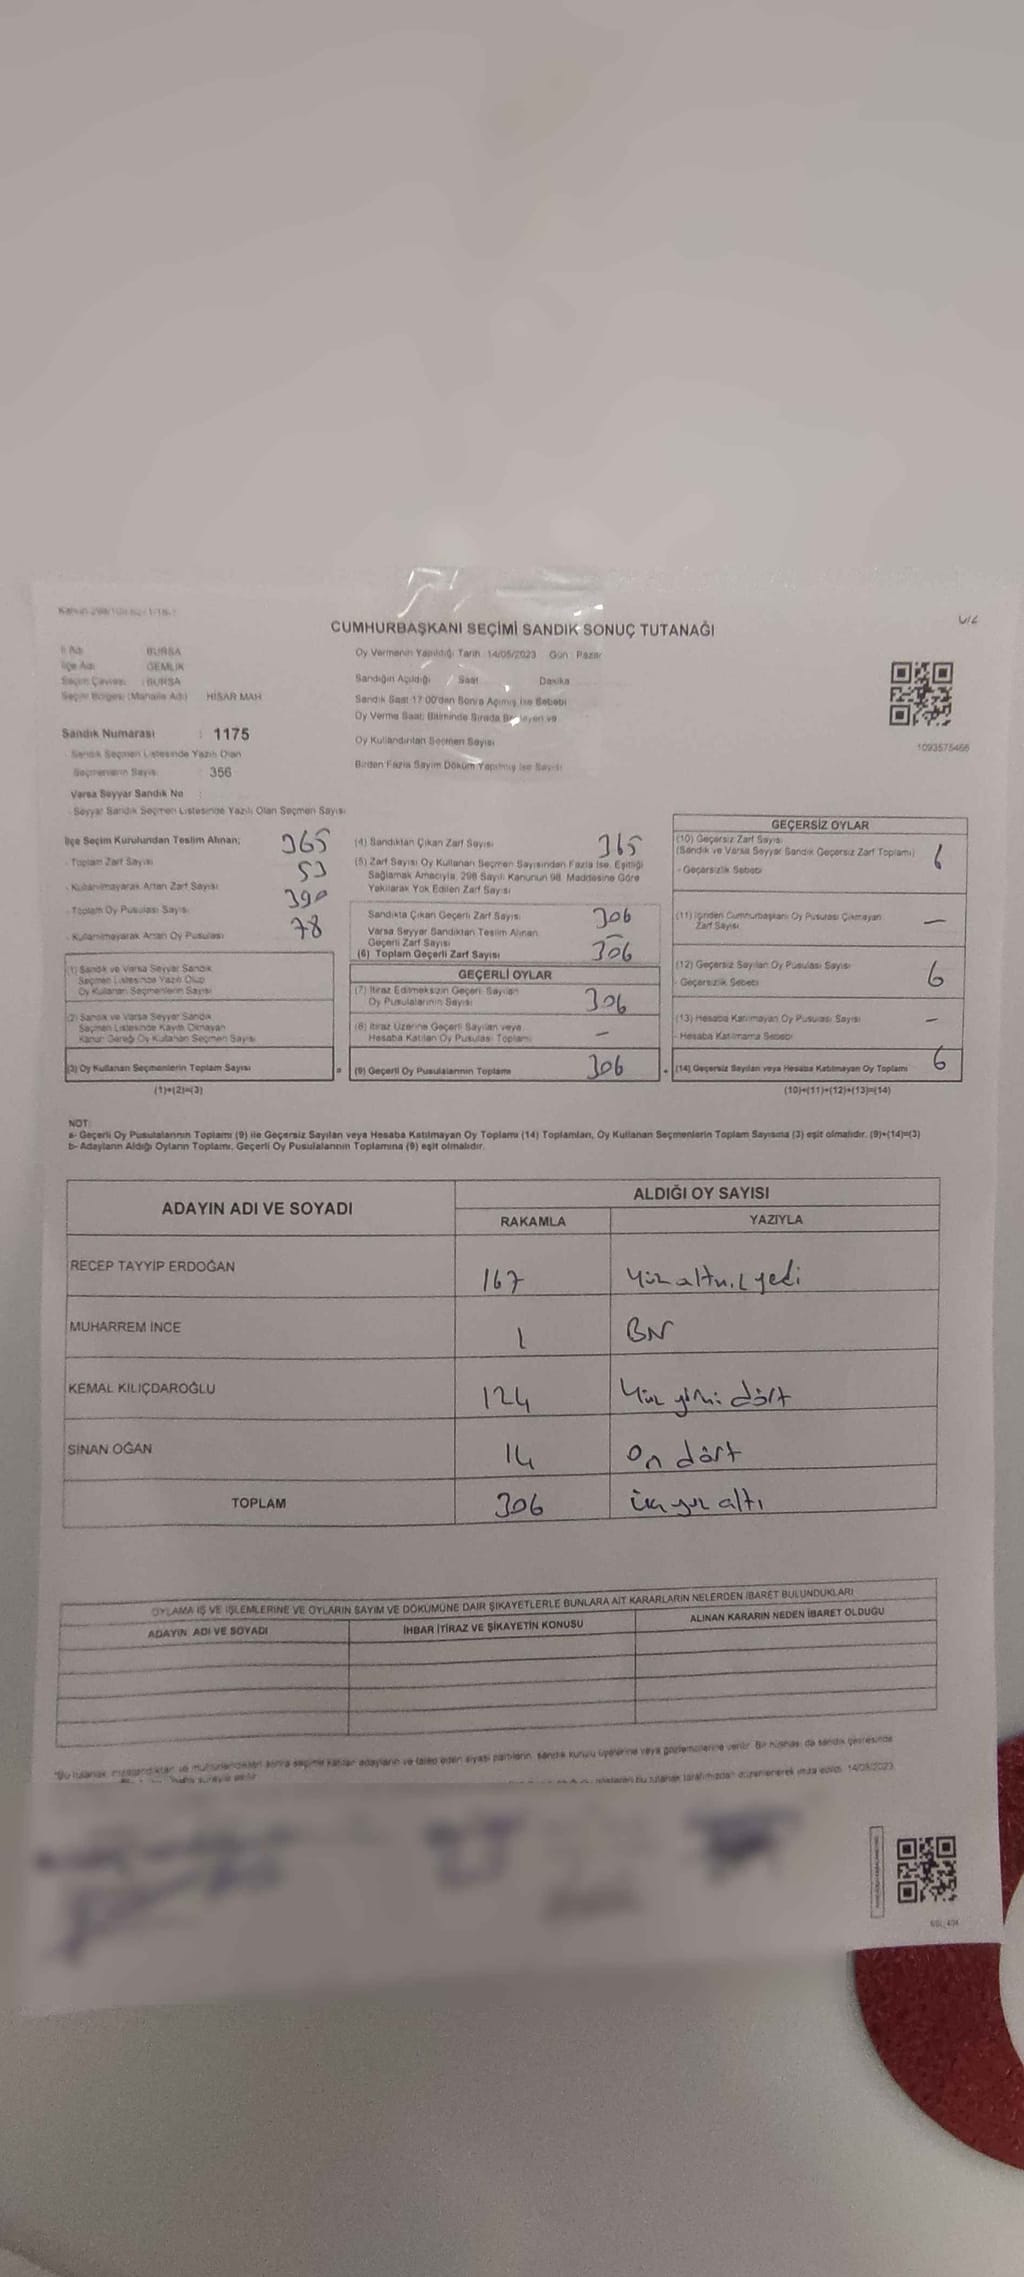 CUMHURBAŞKANI SEÇİMİ SANDIK SONUÇ TUTANAĞI
İl Adı BURSA
İlçe Adı GEMLİK
Seçim Çevresi : BURSA
Seçim Bölgesi (Mahalle Adı) HİSAR MAH
Sandık Numarası : 1175
- Sandık Seçmen Listesinde Yazılı Olan
Seçmenlerin Sayısı : 356
Varsa Seyyar Sandık No :
- Seyyar Sandık Seçmen Listesinde Yazılı Olan Seçmen Sayısı
Oy Vermenin Yapıldığı Tarih : 14/05/2023 Gün : Pazar
Sandığın Açıldığı / Saat Dakika
Sandık Saat 17:00'den Sonra Açılmış İse Sebebi
Oy Verme Saati Bitiminde Sırada Bekleyen ve
Oy Kullandırılan Seçmen Sayısı
Birden Fazla Sayım Döküm Yapılmış İse Sayısı
1093575466
İlçe Seçim Kurulundan Teslim Alınan;
- Toplam Zarf Sayısı 365
- Kullanılmayarak Artan Zarf Sayısı 53
- Toplam Oy Pusulası Sayısı 390
- Kullanılmayarak Artan Oy Pusulası 78
(1) Sandık ve Varsa Seyyar Sandık
Seçmen Listesinde Yazılı Olup
Oy Kullanan Seçmenlerin Sayısı
(2) Sandık ve Varsa Seyyar Sandık
Seçmen Listesinde Kayıtlı Olmayan
Kanun Gereği Oy Kullanan Seçmen Sayısı
(3) Oy Kullanan Seçmenlerin Toplam Sayısı
(1)+(2)=(3)
(4) Sandıktan Çıkan Zarf Sayısı 365
(5) Zarf Sayısı Oy Kullanan Seçmen Sayısından Fazla İse, Eşitliği
Sağlamak Amacıyla, 298 Sayılı Kanunun 98. Maddesine Göre
Yakılarak Yok Edilen Zarf Sayısı
Sandıkta Çıkan Geçerli Zarf Sayısı 306
Varsa Seyyar Sandıktan Teslim Alınan
Geçerli Zarf Sayısı –
(6) Toplam Geçerli Zarf Sayısı 306
GEÇERLİ OYLAR
(7) İtiraz Edilmeksizin Geçerli Sayılan
Oy Pusulalarının Sayısı 306
(8) İtiraz Üzerine Geçerli Sayılan veya
Hesaba Katılan Oy Pusulası Toplamı –
= (9) Geçerli Oy Pusulalarının Toplamı 306
GEÇERSİZ OYLAR
(10) Geçersiz Zarf Sayısı
(Sandık ve Varsa Seyyar Sandık Geçersiz Zarf Toplamı)
- Geçersizlik Sebebi 6
(11) İçinden Cumhurbaşkanı Oy Pusulası Çıkmayan
Zarf Sayısı –
(12) Geçersiz Sayılan Oy Pusulası Sayısı 6
- Geçersizlik Sebebi
(13) Hesaba Katılmayan Oy Pusulası Sayısı –
- Hesaba Katılmama Sebebi
+ (14) Geçersiz Sayılan veya Hesaba Katılmayan Oy Toplamı 6
(10)+(11)+(12)+(13)=(14)
NOT:
a- Geçerli Oy Pusulalarının Toplamı (9) ile Geçersiz Sayılan veya Hesaba Katılmayan Oy Toplamı (14) Toplamları, Oy Kullanan Seçmenlerin Toplam Sayısına (3) eşit olmalıdır. (9)+(14)=(3)
b- Adayların Aldığı Oyların Toplamı, Geçerli Oy Pusulalarının Toplamına (9) eşit olmalıdır.
ADAYIN ADI VE SOYADI ALDIĞI OY SAYISI
RAKAMLA YAZIYLA
RECEP TAYYİP ERDOĞAN 167 Yüz altmış yedi
MUHARREM İNCE 1 BİR
KEMAL KILIÇDAROĞLU 124 Yüz yirmi dört
SİNAN OĞAN 14 On dört
TOPLAM 306 üç yüz altı
OYLAMA İŞ VE İŞLEMLERİNE VE OYLARIN SAYIM VE DÖKÜMÜNE DAİR ŞİKAYETLERLE BUNLARA AİT KARARLARIN NELERDEN İBARET BULUNDUKLARI
ADAYIN ADI VE SOYADI İHBAR İTİRAZ VE ŞİKAYETİN KONUSU ALINAN KARARIN NEDEN İBARET OLDUĞU
"Bu tutanak, imzalandıktan ve mühürlendikten sonra seçime katılan adayların ve talep eden siyasi partilerin, sandık kurulu üyelerine veya gözlemcilerine verilir. Bir nüshası da sandık çevresinde
bu tutanak tarafımızdan düzenlenerek imza edildi. 14/05/2023